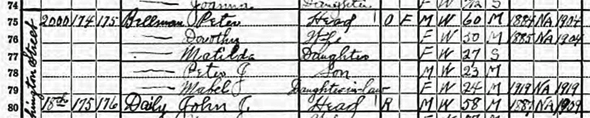 74 Joanna Daughter F W S
75 2000 174 175 Bellman Peter Head O F M W 60 M 1884 NA 1904
76 — Dorothy Wife F W 50 M 1885 NA 1904
77 — Matilda Daughter F W 27 S
78 — Peter J. Son M W 23 M
79 — Mabel Daughter-in-law F W 24 M 1919 NA 1919
80 18th 175 176 Daily John J. Head R M W 58 M NA